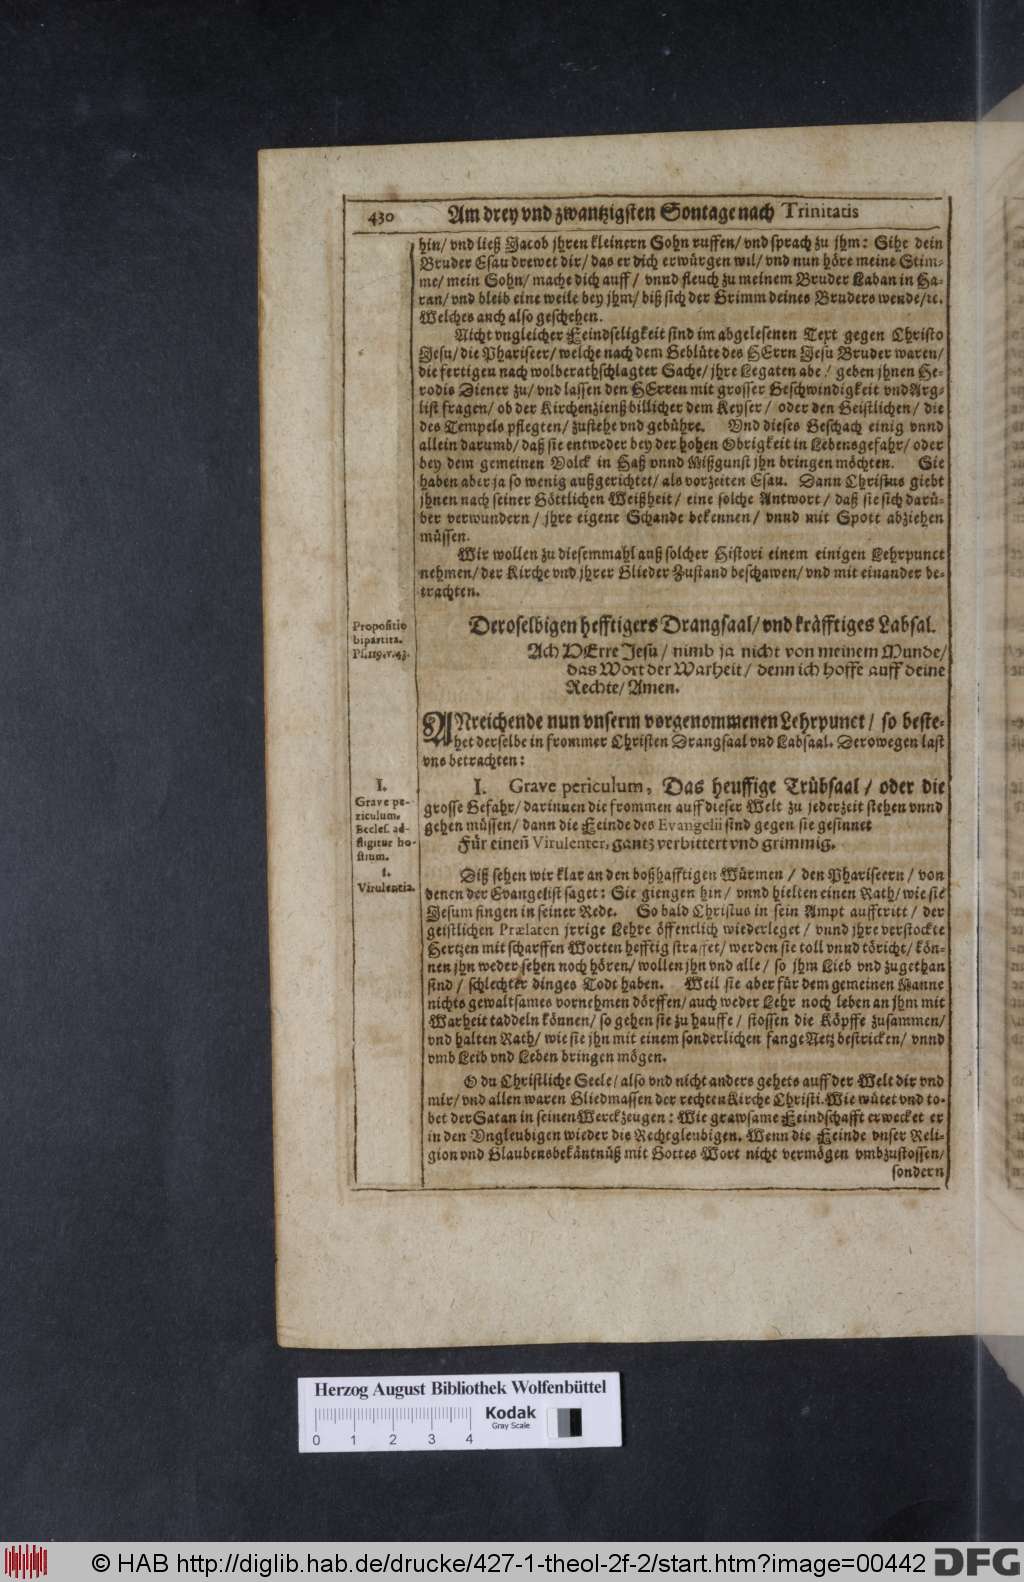 430 Am drey vnd zwantzigsten Sontage nach Trinitatis
hin/ vnd ließ Jacob jhren kleinern Sohn ruffen/ vnd sprach zu jhm: Sihe dein
Bruder Esau drewet dir/ das er dich erwürgen wil/ vnd nun höre meine Stim-
me/ mein Sohn/ mache dich auff/ vnnd fleuch zu meinem Bruder Laban in Ha-
ran/ vnd bleib eine weile bey jhm/ biß sich der Grimm deines Bruders wende/ ꝛc.
Welches auch also geschehen.
Nicht vngleicher Feindseligkeit sind im abgelesenen Text gegen Christo
Jesu/ die Phariseer/ welche nach dem Geblüte des HErrn Jesu Bruder waren/
die fertigen nach wolberathschlagter Sache/ jhre Legaten abe/ geben jhnen He-
rodis Diener zu/ vnd lassen den HErren mit grosser Geschwindigkeit vnd Arg-
list fragen/ ob der Kirchenzienß billicher dem Keyser/ oder den Geistlichen/ die
des Tempels pflegten/ zustehe vnd gebühre. Vnd dieses Geschach einig vnnd
allein darumb/ daß sie entweder bey der hohen Obrigkeit in Lebensgefahr/ oder
bey dem gemeinen Volck in Haß vnnd Mißgunst jhn bringen möchten. Sie
haben aber ja so wenig außgerichtet/ als vorzeiten Esau. Dann Christus giebt
jhnen nach seiner Göttlichen Weißheit/ eine solche Antwort/ daß sie sich darü-
ber verwundern/ jhre eigene Schande bekennen/ vnnd mit Spott abziehen
müssen.
Wir wollen zu diesemmahl auß solcher Histori einem einigen Lehrpunct
nehmen/ der Kirche vnd jhrer Glieder Zustand beschawen/ vnd mit einander be-
trachten.
Propositio
bipartita.
Ps. 119. v. 43.
Deroselbigen hefftigers Drangsaal/ vnd kräfftiges Labsal.
Ach HErre Jesu/ nimb ja nicht von meinem Munde/
das Wort der Warheit/ denn ich hoffe auff deine
Rechte/ Amen.
ANreichende nun vnserm vorgenommenen Lehrpunct/ so beste-
het derselbe in frommer Christen Drangsaal vnd Labsaal. Derowegen last
vns betrachten:
I.
Grave pe-
riculum.
Eccles. ad-
fligitur ho-
stium.
1.
Virulentia.
I. Grave periculum, Das heuffige Trübsaal/ oder die
grosse Gefahr/ darinnen die frommen auff dieser Welt zu jederzeit stehen vnnd
gehen müssen/ dann die Feinde des Evangelii sind gegen sie gesinnet
Für einen Virulenter, gantz verbittert vnd grimmig.
Diß sehen wir klar an den boßhafftigen Würmen/ den Phariseern/ von
denen der Evangelist saget: Sie giengen hin/ vnnd hielten einen Rath/ wie sie
Jesum fingen in seiner Rede. So bald Christus in sein Ampt aufftritt/ der
geistlichen Prælaten jrrige Lehre öffentlich wiederleget/ vnnd jhre verstockte
Hertzen mit scharffen Worten hefftig straffet/ werden sie toll vnnd töricht/ kön-
nen jhn weder sehen noch hören/ wollen jhn vnd alle/ so jhm Lieb vnd zugethan
sind/ schlechter dinges Todt haben. Weil sie aber für dem gemeinen Manne
nichts gewaltsames vornehmen dörffen/ auch weder Lehr noch leben an jhm mit
Warheit taddeln können/ so gehen sie zu hauffe/ stossen die Köpffe zusammen/
vnd halten Rath/ wie sie jhn mit einem sonderlichen fange Netz bestricken/ vnnd
vmb Leib vnd Leben bringen mögen.
O du Christliche Seele/ also vnd nicht anders gehets auff der Welt dir vnd
mir/ vnd allen waren Gliedmassen der rechten Kirche Christi. Wie wütet vnd to-
bet der Satan in seinen Werckzeugen: Wie grawsame Feindschafft erwecket er
in den Vngleubigen wieder die Rechtgleubigen. Wenn die Feinde vnser Reli-
gion vnd Glaubensbekäntnüß mit Gottes Wort nicht vermögen vmbzustossen/
sondern
Herzog August Bibliothek Wolfenbüttel
Kodak
Gray Scale
0 1 2 3 4
© HAB http://diglib.hab.de/drucke/427-1-theol-2f-2/start.htm?image=00442 DFG